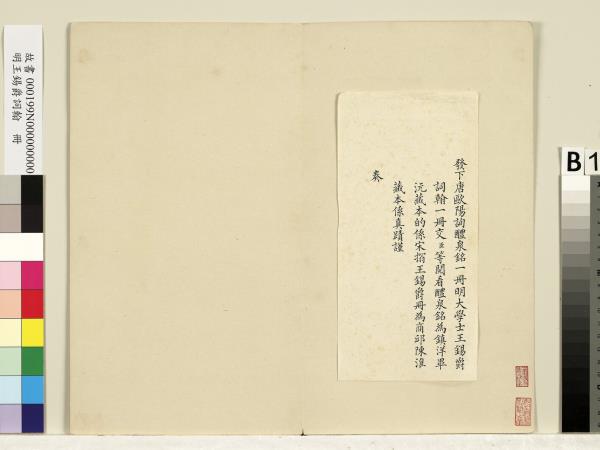 發下唐歐陽詢醴泉銘一冊明大學士王錫爵
詞翰一冊交臣等閱看醴泉銘為鎮洋畢
沅藏本的係宋搨王錫爵冊為商邱陳淮
藏本係真蹟謹
奏
故書 000199N000000000
明王錫爵詞翰 冊
B 1